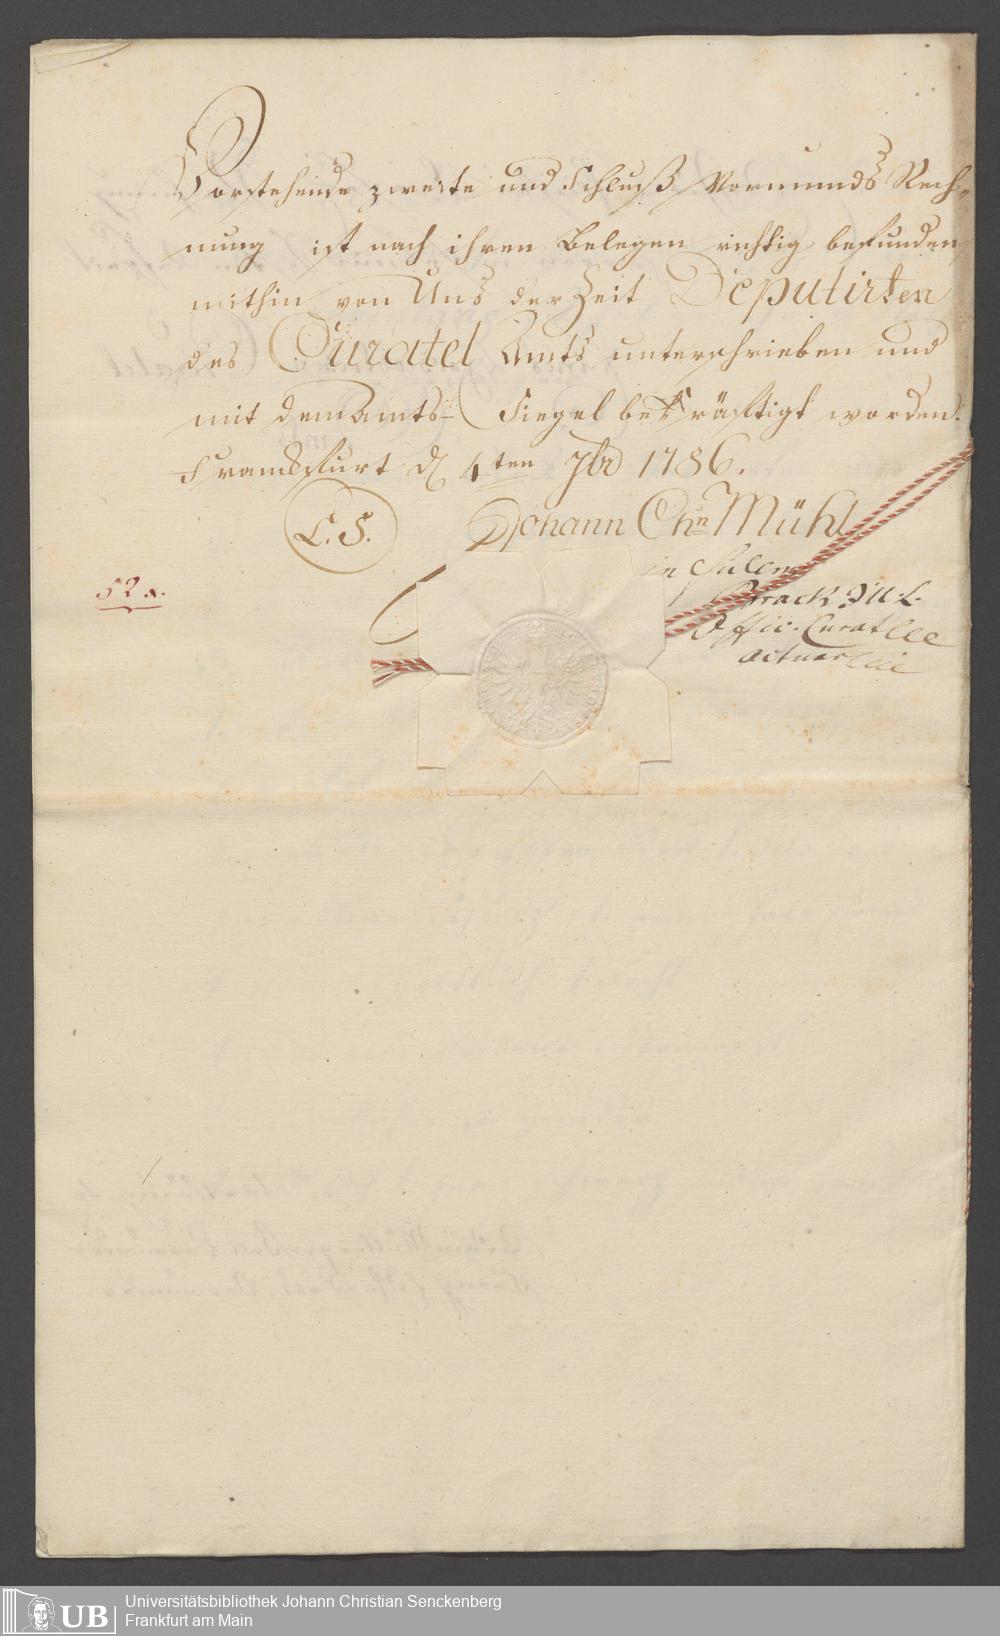 Vorstehende zweite und Schluß Vormunds Rech-
nung ist nach ihren Belegen richtig befunden
mithin von Uns der Zeit Deputirten
des Curatel Amts unterschrieben und
mit dem Amts- Siegel bekräftigt worden.
Franckfurt d 4ten 7br 1786.
L. S.
Johann Chn Mühl
in fidem
52 x.
Offic. Curatelae
actuar
Universitätsbibliothek Johann Christian Senckenberg
Frankfurt am Main
UB